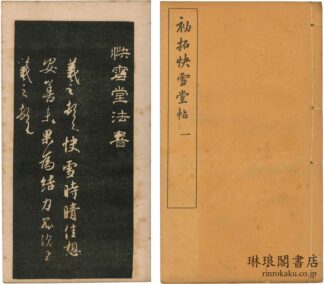 快雪堂法書
羲之頓首快雪時晴佳想
安善未果為結力不次王
羲之頓首
初拓快雪堂帖 一
琳琅閣書店
rinrokaku.co.jp